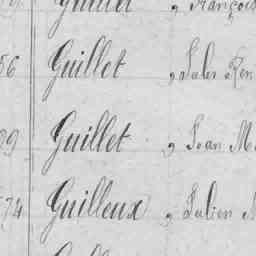 Guillet, François
56 Guillet, Jules Ren
99 Guillet, Jean M
574 Guilleux, Julien